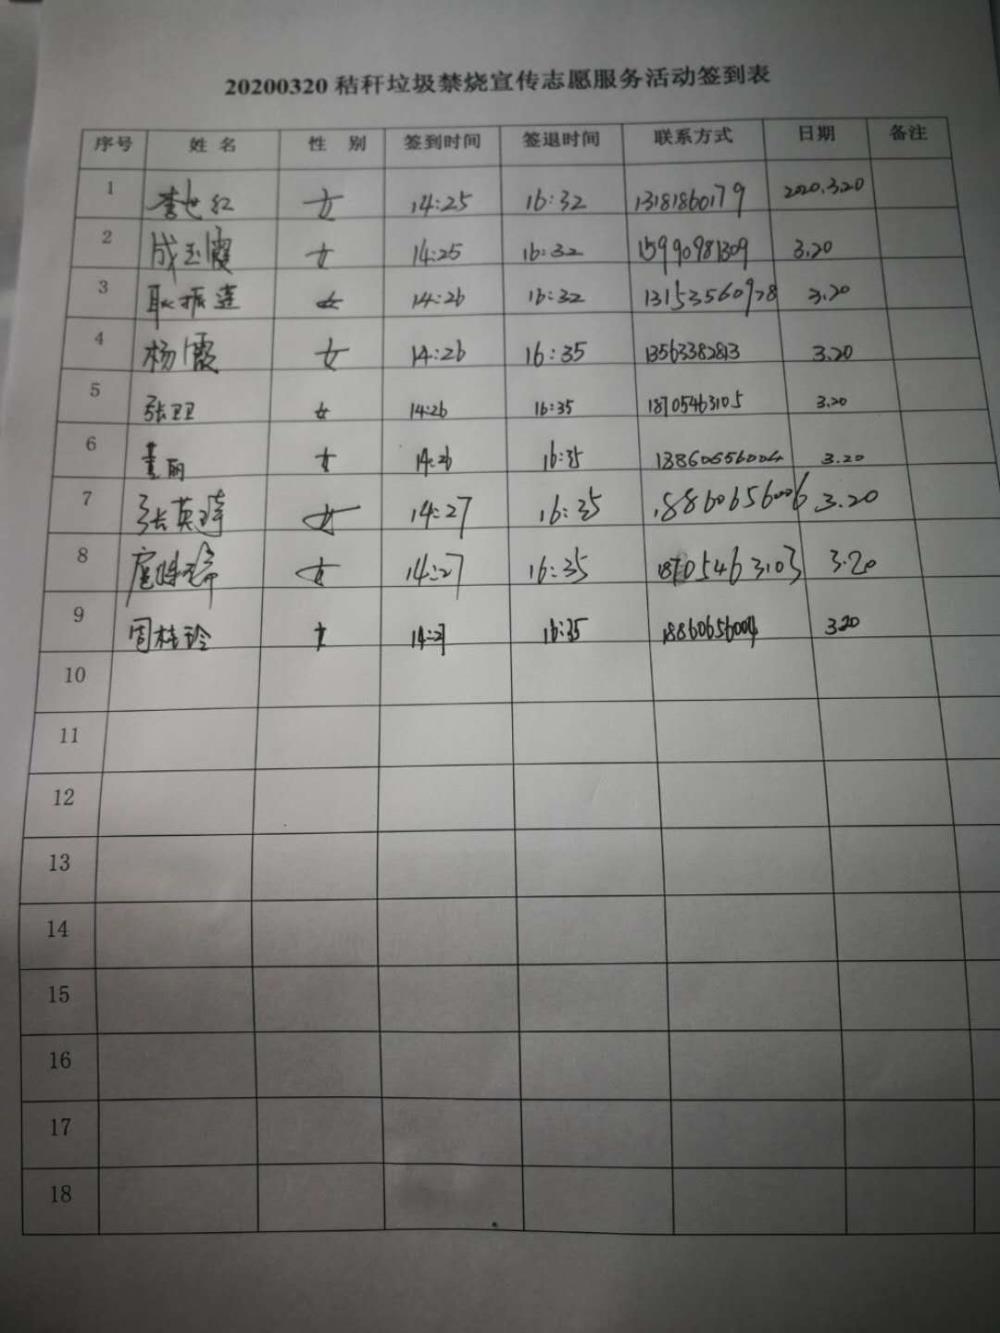 20200320秸秆垃圾禁烧宣传志愿服务活动签到表
序号 姓名 性别 签到时间 签退时间 联系方式 日期 备注
1 李世红 女 14:25 16:32 13181860179 2020.3.20
2 成玉霞 女 14:25 16:32 15990981309 3.20
3 耿振莲 女 14:26 16:32 13153560978 3.20
4 杨霞 女 14:26 16:35 13563382813 3.20
5 张卫卫 女 14:26 16:35 18705463105 3.20
6 董丽 女 14:26 16:35 18860656004 3.20
7 张英 女 14:27 16:35 18860656006 3.20
8 女 14:27 16:35 18705463103 3.20
9 周桂玲 女 14:27 16:35 18860656004 3.20
10
11
12
13
14
15
16
17
18